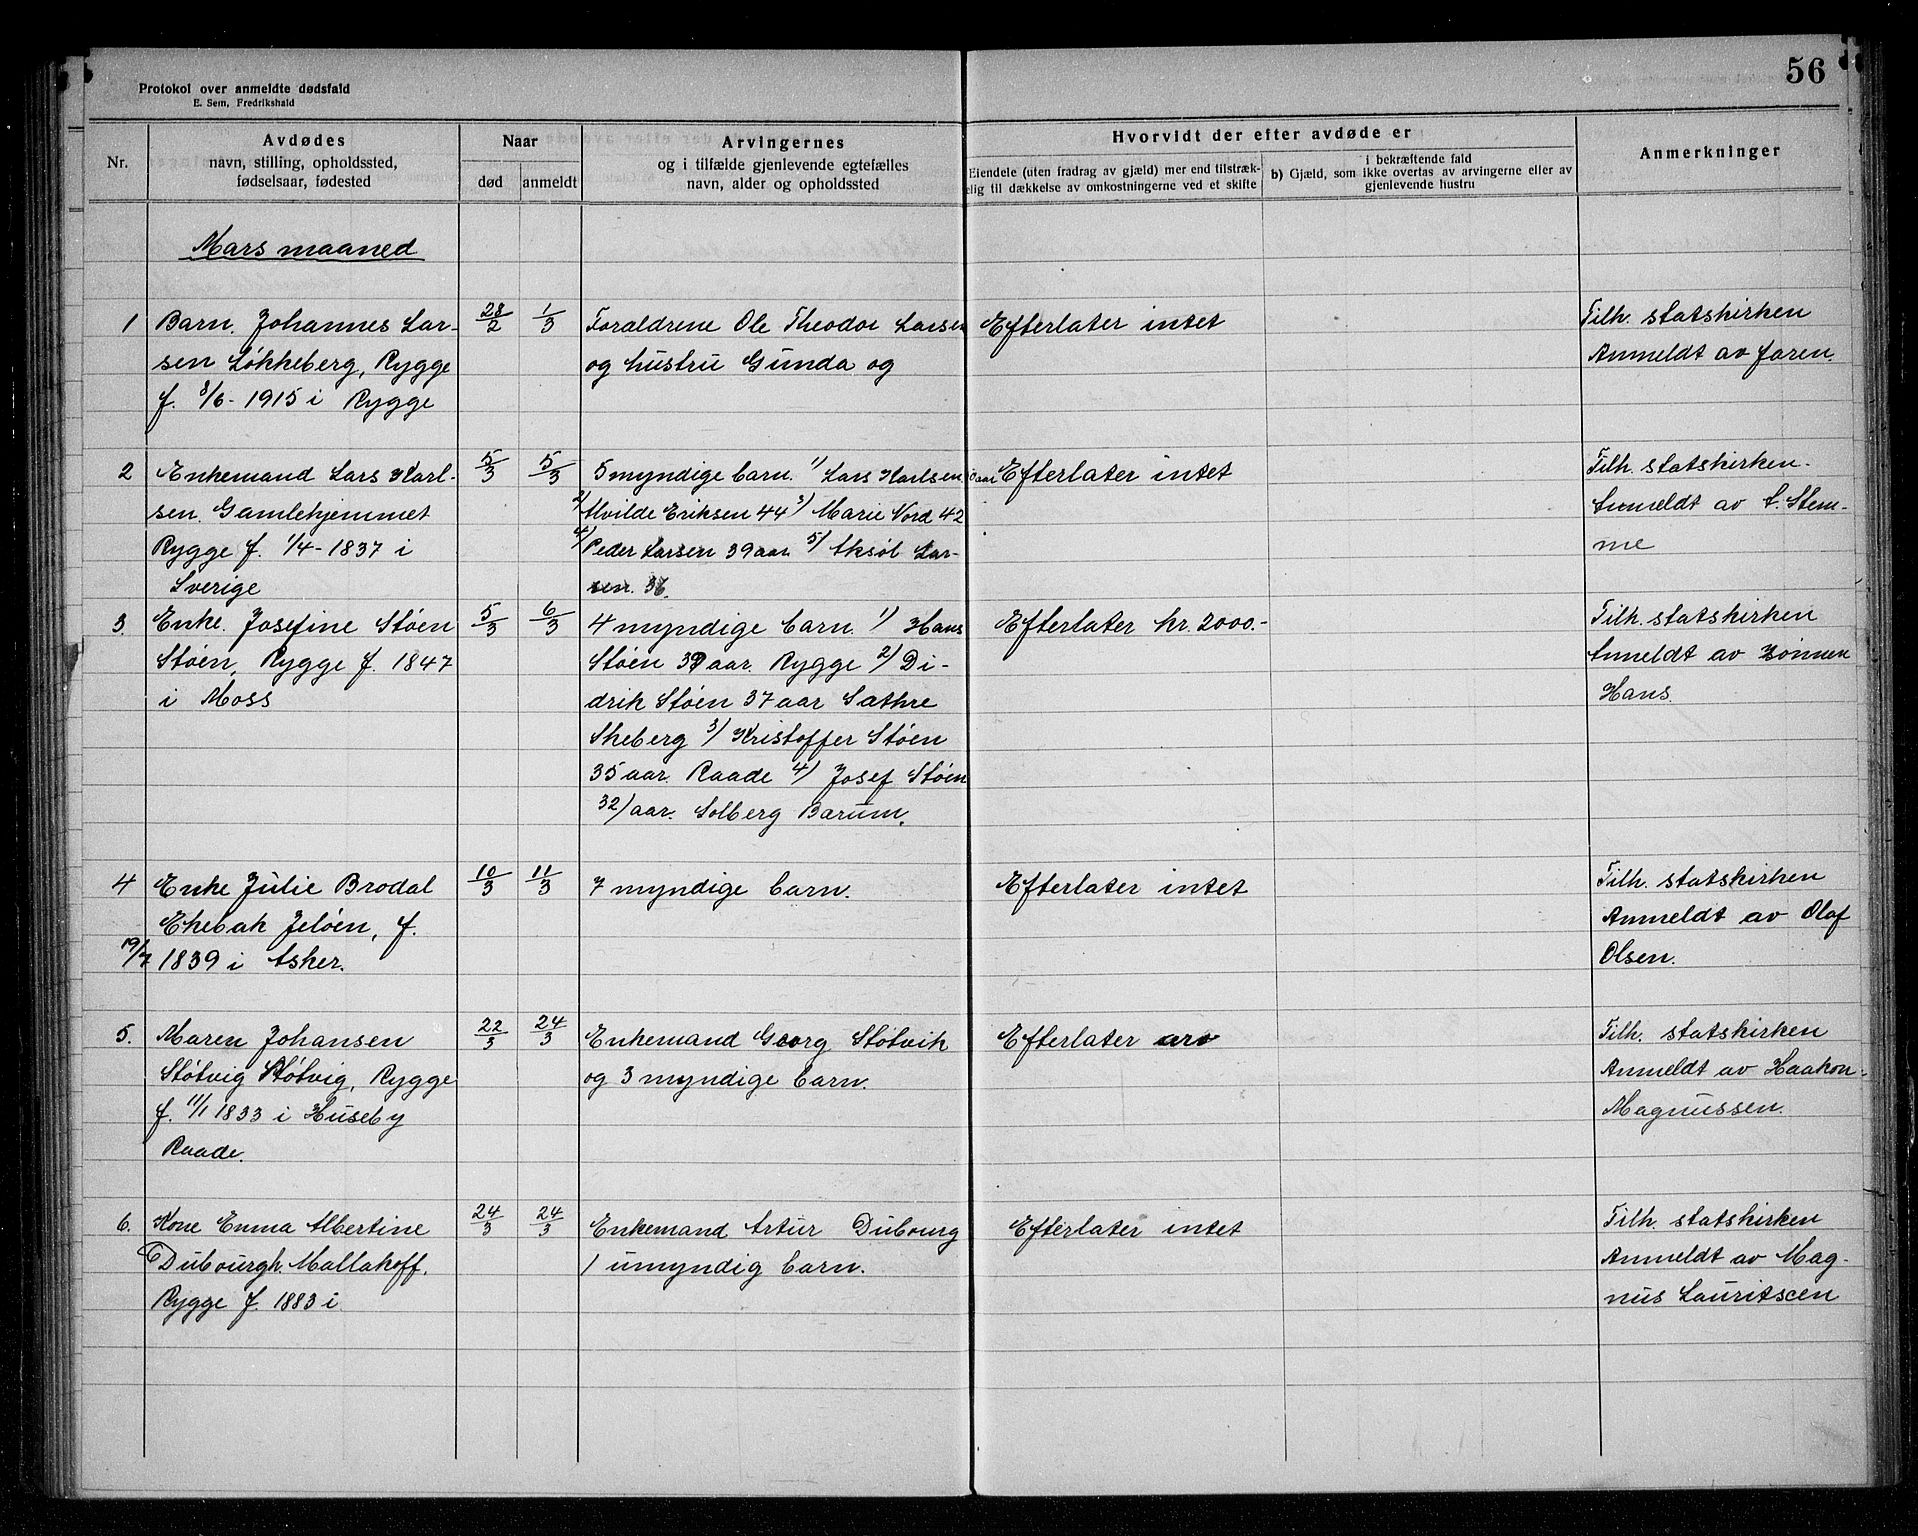 56
Protokol over anmeldte dødsfald
E. Sem, Fredrikshald
Nr.
Avdødes
navn, stilling, opholdssted,
fødselsaar, fødested
Naar
død
anmeldt
Arvingernes
og i tilfælde gjenlevende egtefælles
navn, alder og opholdssted
Hvorvidt der efter avdøde er
Eiendele (uten fradrag av gjæld) mer end tilstræk-
elig til dækkelse av omkostningerne ved et skifte
i bekræftende fald
b) Gjæld, som ikke overtas av arvingerne eller av
gjenlevende hustru
Anmerkninger
Mars maaned
1
Barn. Johannes Lar-
sen Løkkeberg, Rygge
f. 8/6 - 1915 i Rygge
28/2
1/3
Foraldrene Ole Theodor Larsen
og hustru Gunda og
Efterlater intet
Tilh. statskirken
Anmeldt av faren.
2
Enkemand Lars Karl-
sen. Gamlehjemmet
Rygge f. 1/4 - 1837 i
Sverige
5/3
5/3
5 myndige barn. 1/ Lars Karlsen aar
2/ Alvilde Eriksen 44 3/ Marie Nord 42
4/ Peder Larsen 39 aar 5/ Aksøl Lar-
sen. 36.
Efterlater intet
Tilh. statskirken.
Anmeldt av A. Stem-
me
3.
Enke. Josefine Støen
Støen, Rygge f. 1847
i Moss
5/3
6/3
4 myndige barn. 1/ Hans
Støen 39 aar. Rygge 2/ Di-
drik Støen 37 aar Sathre
Skeberg 3/ Kristoffer Støen
35 aar. Raade 4/ Josef Støen
32/ aar. Solberg Barum.
Efterlater kr. 2000.-
Tilh. statskirken
Anmeldt av sønnen
Hans.
4
Enke Julie Brodal
Ekebak Jeløen, f.
19/7 1839 i Asker.
10/3
11/3
7 myndige barn.
Efterlater intet
Tilh. statskirken
Anmeldt av Olaf
Olsen.
5.
Maren Johansen
Støtvig Støtvig, Rygge
f. 11/1 1833 i Huseby
Raade.
22/3
24/3
Enkemand Georg Støtvik
og 3 myndige barn.
Efterlater arv
Tilh. statskirken
Anmeldt av Haakon-
Magnussen.
6.
Kone Emma Albertine
Dubourgh. Mallakoff.
Rygge f. 1883 i
24/3
24/3
Enkemand Artur Dubourg
1 umyndig barn.
Efterlater intet
Tilh. statskirken
Anmeldt av Mag-
nus Lauritscen